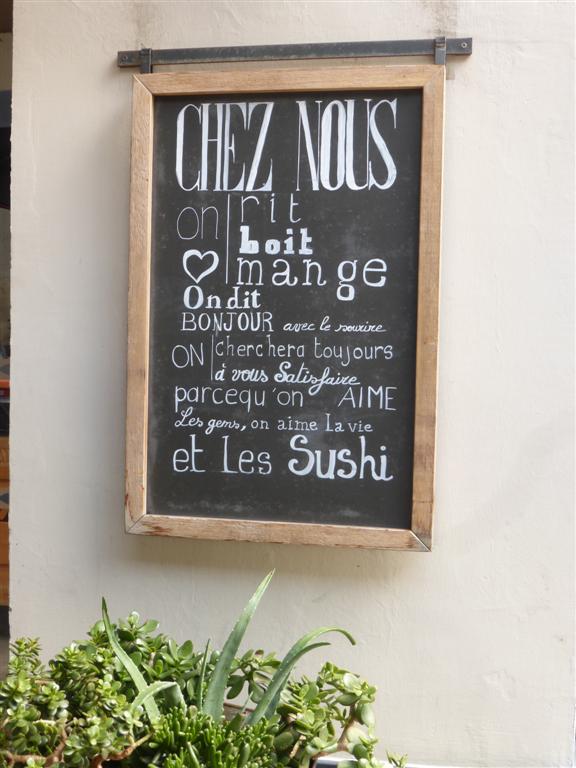 CHEZ NOUS
on rit
boit
mange
On dit
BONJOUR avec le sourire
ON cherchera toujours
à vous Satisfaire
parcequ'on AIME
Les gens, on aime La vie
et Les Sushi